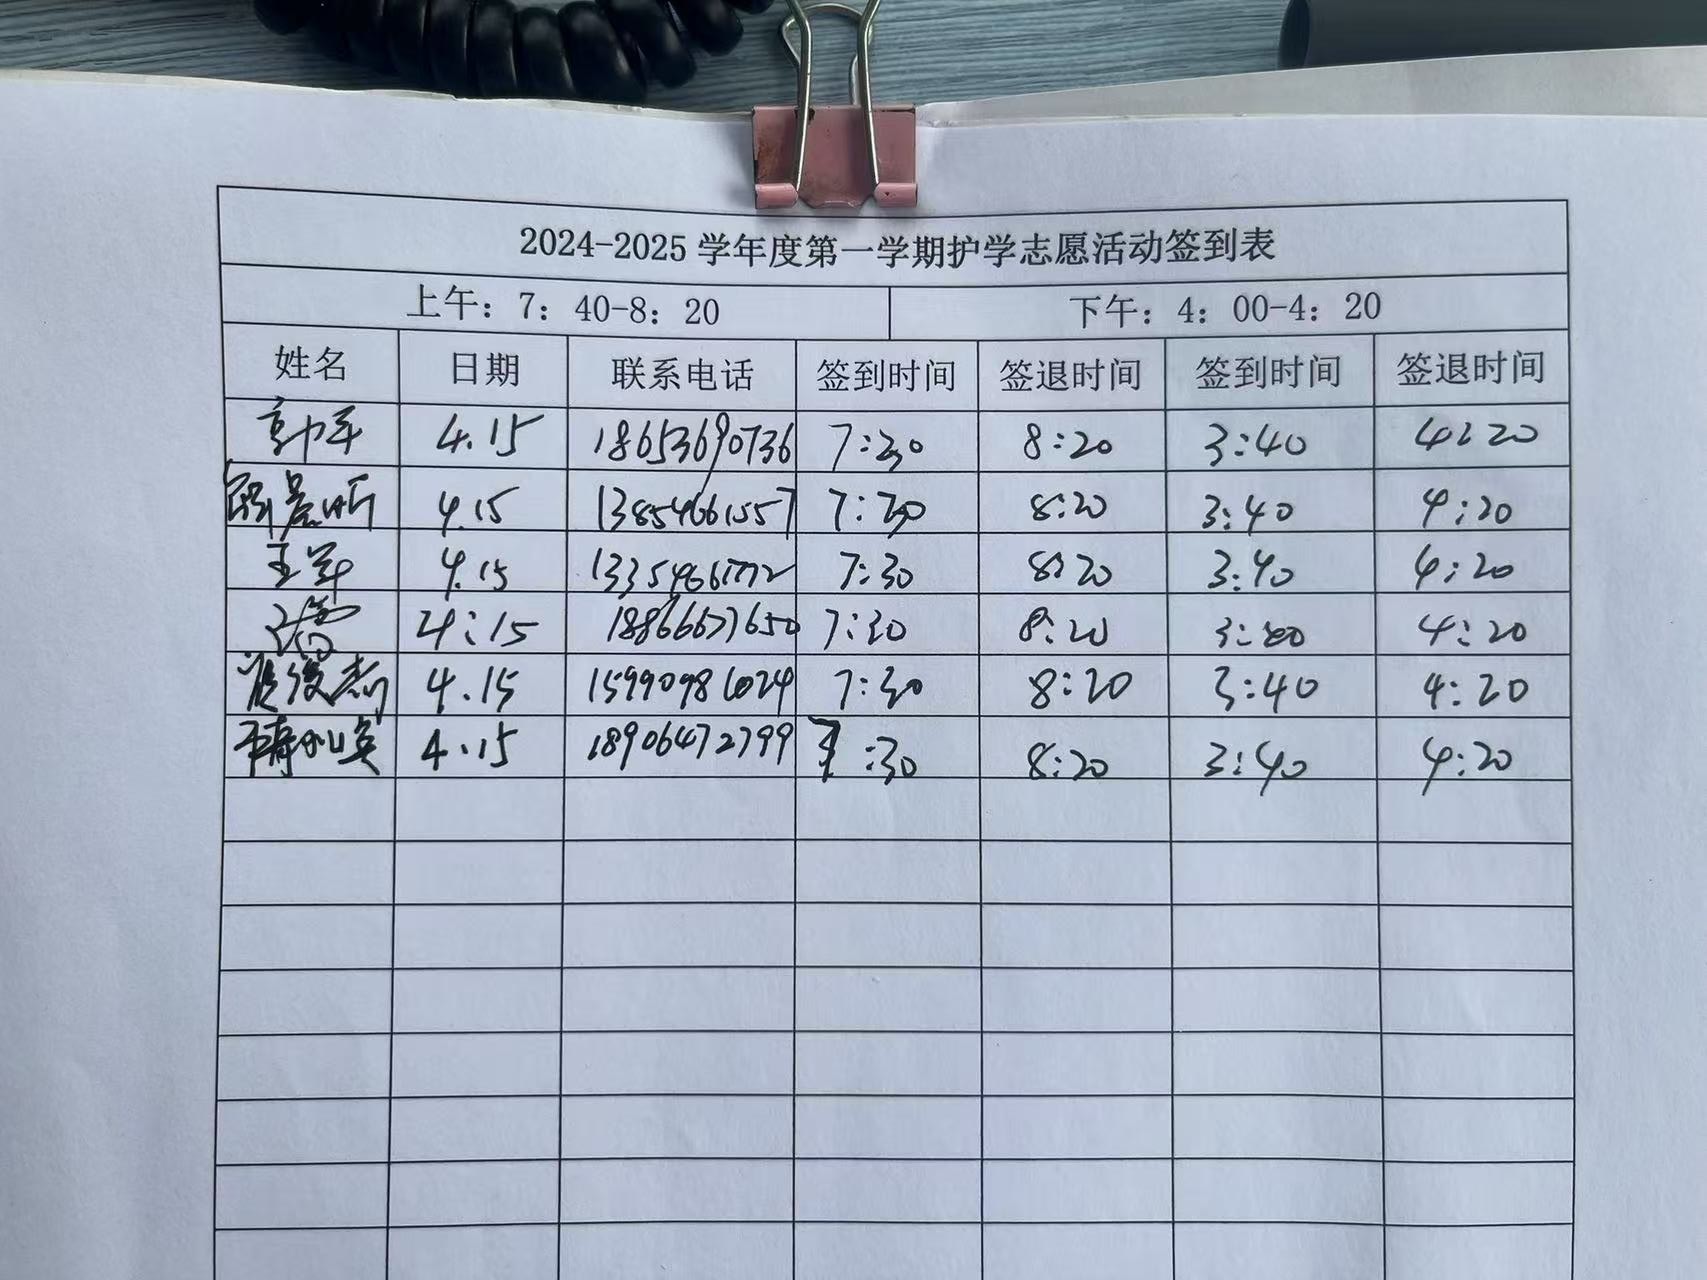 2024-2025 学年度第一学期护学志愿活动签到表
上午：7：40-8：20 下午：4：00-4：20
姓名 日期 联系电话 签到时间 签退时间 签到时间 签退时间
4.15 18653690736 7:30 8:20 3:40 4:20
4.15 13854661557 7:30 8:20 3:40 4:20
4.15 7:30 8:20 3:40 4:20
4:15 18866677650 7:30 8:20 3:40 4:20
4.15 7:30 8:20 3:40 4:20
4.15 18906472799 7:30 8:20 3:40 4:20